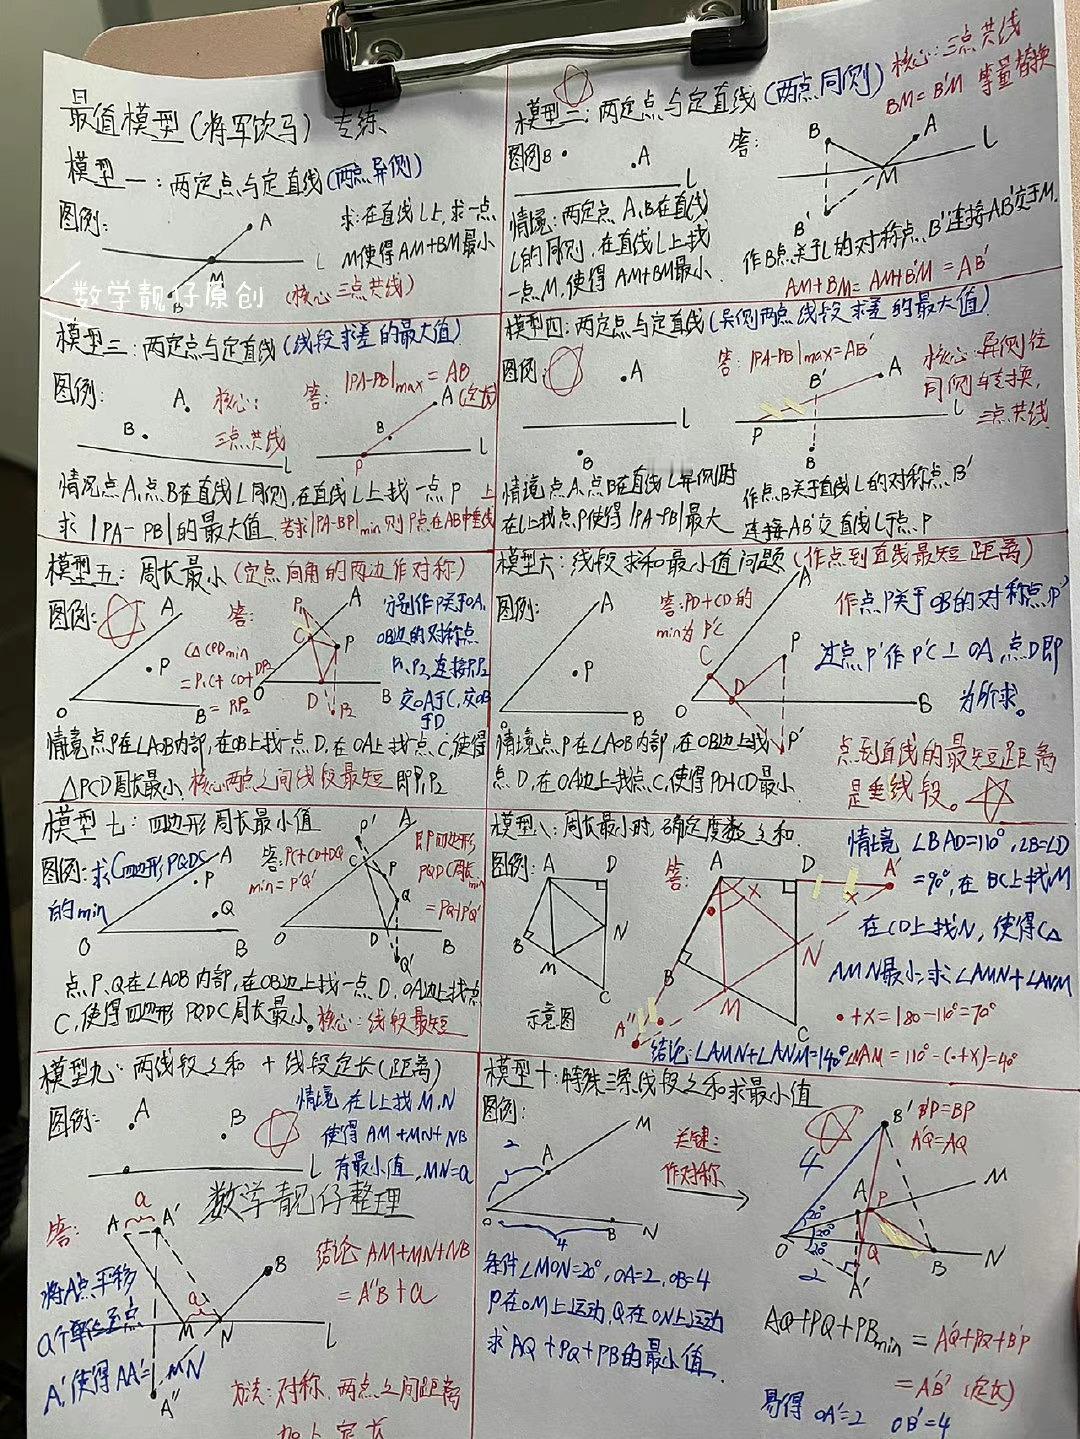 最值模型(将军饮马) 专练
模型一:两定点与定直线(两点异侧)
图例:
A
L
M
B
求:在直线L上,求一点
M使得AM+BM最小
(核心三点共线)
数学靓仔原创
模型二:两定点与定直线(两点同侧)
核心:三点共线
BM=B'M 等量替换
图例
B
A
L
答:
B
A
L
M
B'
情境:两定点A、B在直线
L的同侧,在直线L上找
一点M,使得AM+BM最小.
作B点关于L的对称点B'连接AB'交于M.
AM+BM=AM+B'M=AB'
模型三:两定点与定直线(线段求差的最大值)
图例:
A
B
L
核心:
三点共线
答:
|PA-PB|max=AB
(定长)
A
B
P
L
情况点A、点B在直线L同侧,在直线L上找一点P 上
求|PA-PB|的最大值 若求|PA-BP|min则P点在AB中垂线
模型四:两定点与定直线(异侧两点线段求差的最大值)
图例:
A
L
B
答:|PA-PB|max=AB'
B'
A
P
L
B
核心:异侧往
同侧转换,
三点共线
情境点A、点B在直线L异侧时
在L上找点P使得|PA-PB|最大
作点B关于直线L的对称点B'
连接AB'交直线L于点P
模型五:周长最小(定点向角的两边作对称)
图例:
A
P
O
B
答:
C△CPDmin
=P1C+CD+DP2
=P1P2
P1
A
C
P
O
D
B
P2
分别作P关于OA、
OB边的对称点
P1、P2,连接P1P2
交OA于C,交OB
于D
情境点P在∠AOB内部,在OB上找一点D,在OA上找一点C,使得
△PCD周长最小 核心两点之间线段最短 即P1P2
模型六:线段求和最小值问题(作点到直线最短距离)
图例:
A
P
O
B
答:PD+CD的
min为P'C
A
C
P
D
O
B
P'
作点P关于OB的对称点P'
过点P'作P'C⊥OA,点D即
为所求。
情境点P在∠AOB内部,在OB边上找一
点D,在OA边上找点C,使得PD+CD最小.
点到直线的最短距离
是垂线段。
模型七:四边形周长最小值
图例:求C四边形PQDC
的min
A
P
Q
O
B
答:PC+CD+DQ
min=P'Q'
P'
A
C
P
Q
O
D
B
Q'
即四边形
PQDC周长min
=PQ+P'Q'
点P、Q在∠AOB内部,在OB边上找一点D,OA边上找点
C,使得四边形PQDC周长最小。核心:线段最短
模型八:周长最小时,确定度数之和
图例:
A
D
B
M
N
C
示意图
答:
A
D
A'
B
N
M
A''
C
情境 ∠BAD=110°,∠B=∠D
=90°,在BC上找M
在CD上找N,使得C△
AMN最小;求∠AMN+∠ANM
•+×=180-110°=70°
结论:∠AMN+∠ANM=140° ∠NAM=110°-(•+×)=40°
模型九:两线段之和+线段定长(距离)
图例:
A
B
L
情境 在L上找M、N
使得AM+MN+NB
有最小值,MN=a
数学靓仔整理
答:
a
A
A'
B
a
M
N
L
A''
结论AM+MN+NB
=A''B+a
将A点平移
a个单位至点
A',使得AA'=MN
方法:对称、两点之间距离
加上定长
模型十:特殊三条线段之和求最小值
图例:
2
A
M
O
B
N
4
关键:
作对称
B'
B'P=BP
A'Q=AQ
4
A
P
M
20°
20°
20°
O
Q
B
N
2
A'
条件∠MON=20°,OA=2,OB=4
P在OM上运动,Q在ON上运动
求AQ+PQ+PB的最小值
AQ+PQ+PBmin=A'Q+PQ+B'P
=A'B'(定长)
易得 OA'=2 OB'=4